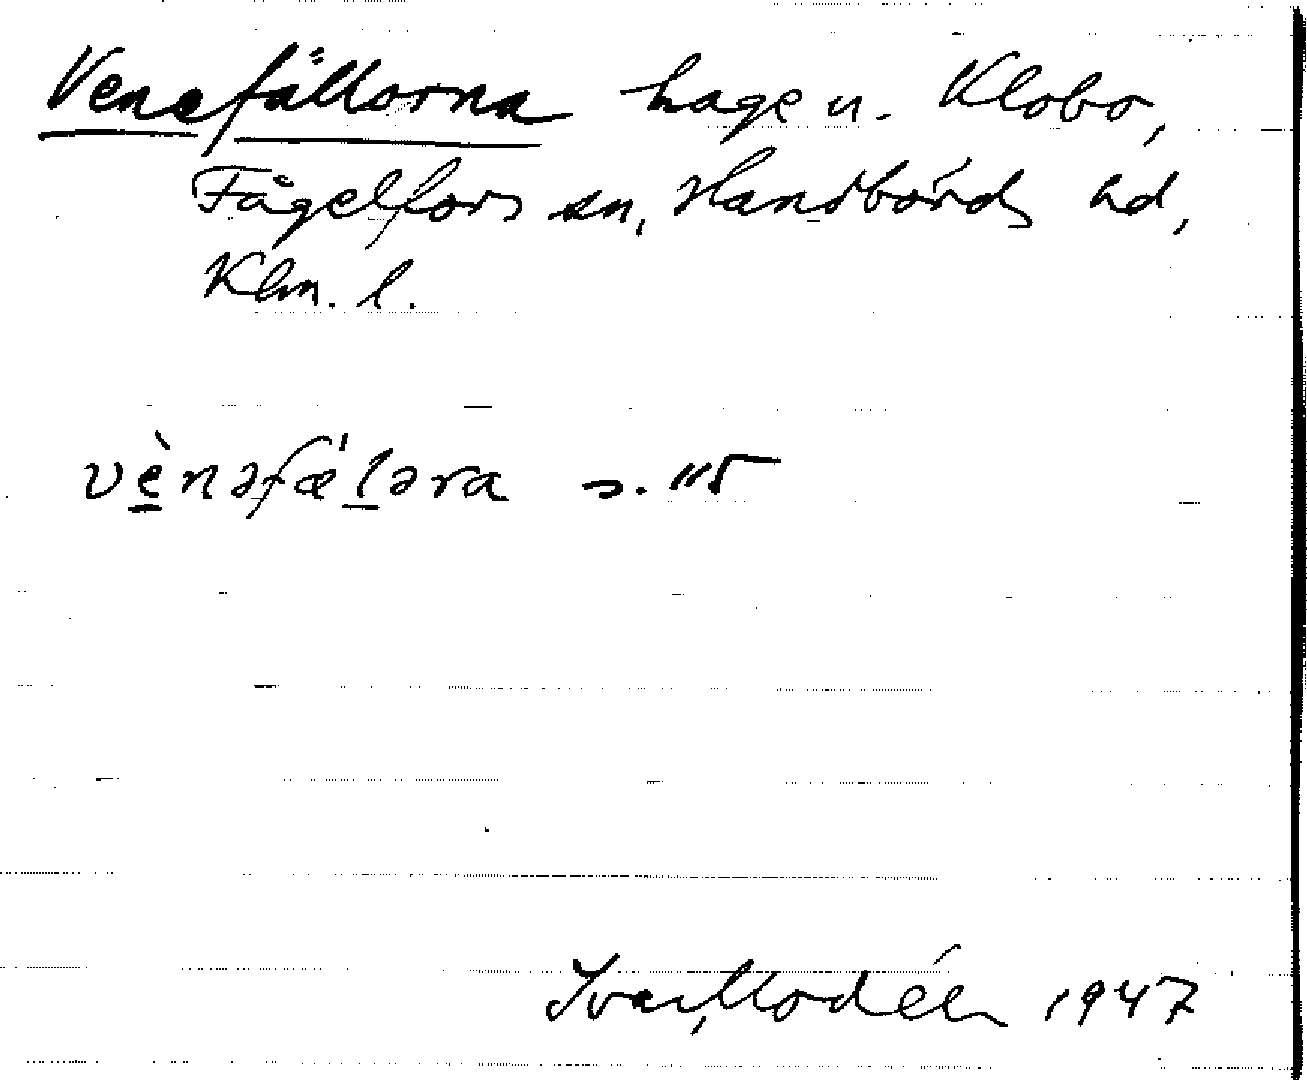 Venefällorna hage u. Klobo,
Fågelfors sn, Handbörds hd,
Klm. l.
vènəfæ'lərа s. 115
Ivar Modéer 1947